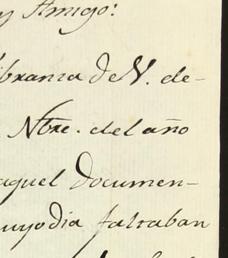 y Amigo:
branza de N. de-
Nbre. del año
aquel documen-
uyo dia faltaban